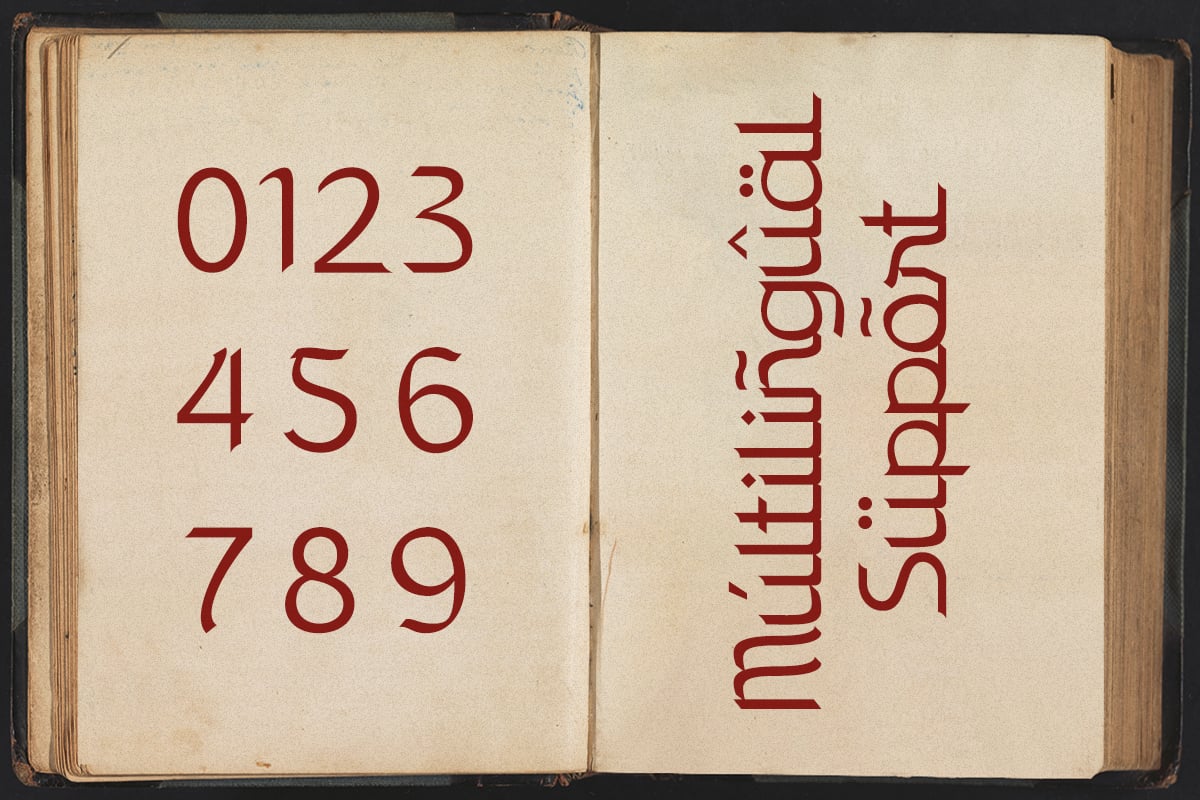 0123
456
789
Múltiliñgûäl
Süppõrt